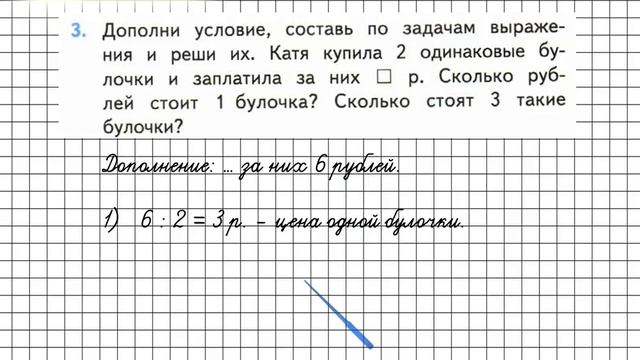 3. Дополни условие, составь по задачам выраже-
ния и реши их. Катя купила 2 одинаковые бу-
лочки и заплатила за них □ р. Сколько руб-
лей стоит 1 булочка? Сколько стоят 3 такие
булочки?
Дополнение: ... за них 6 рублей.
1) 6 : 2 = 3 р. – цена одной булочки.